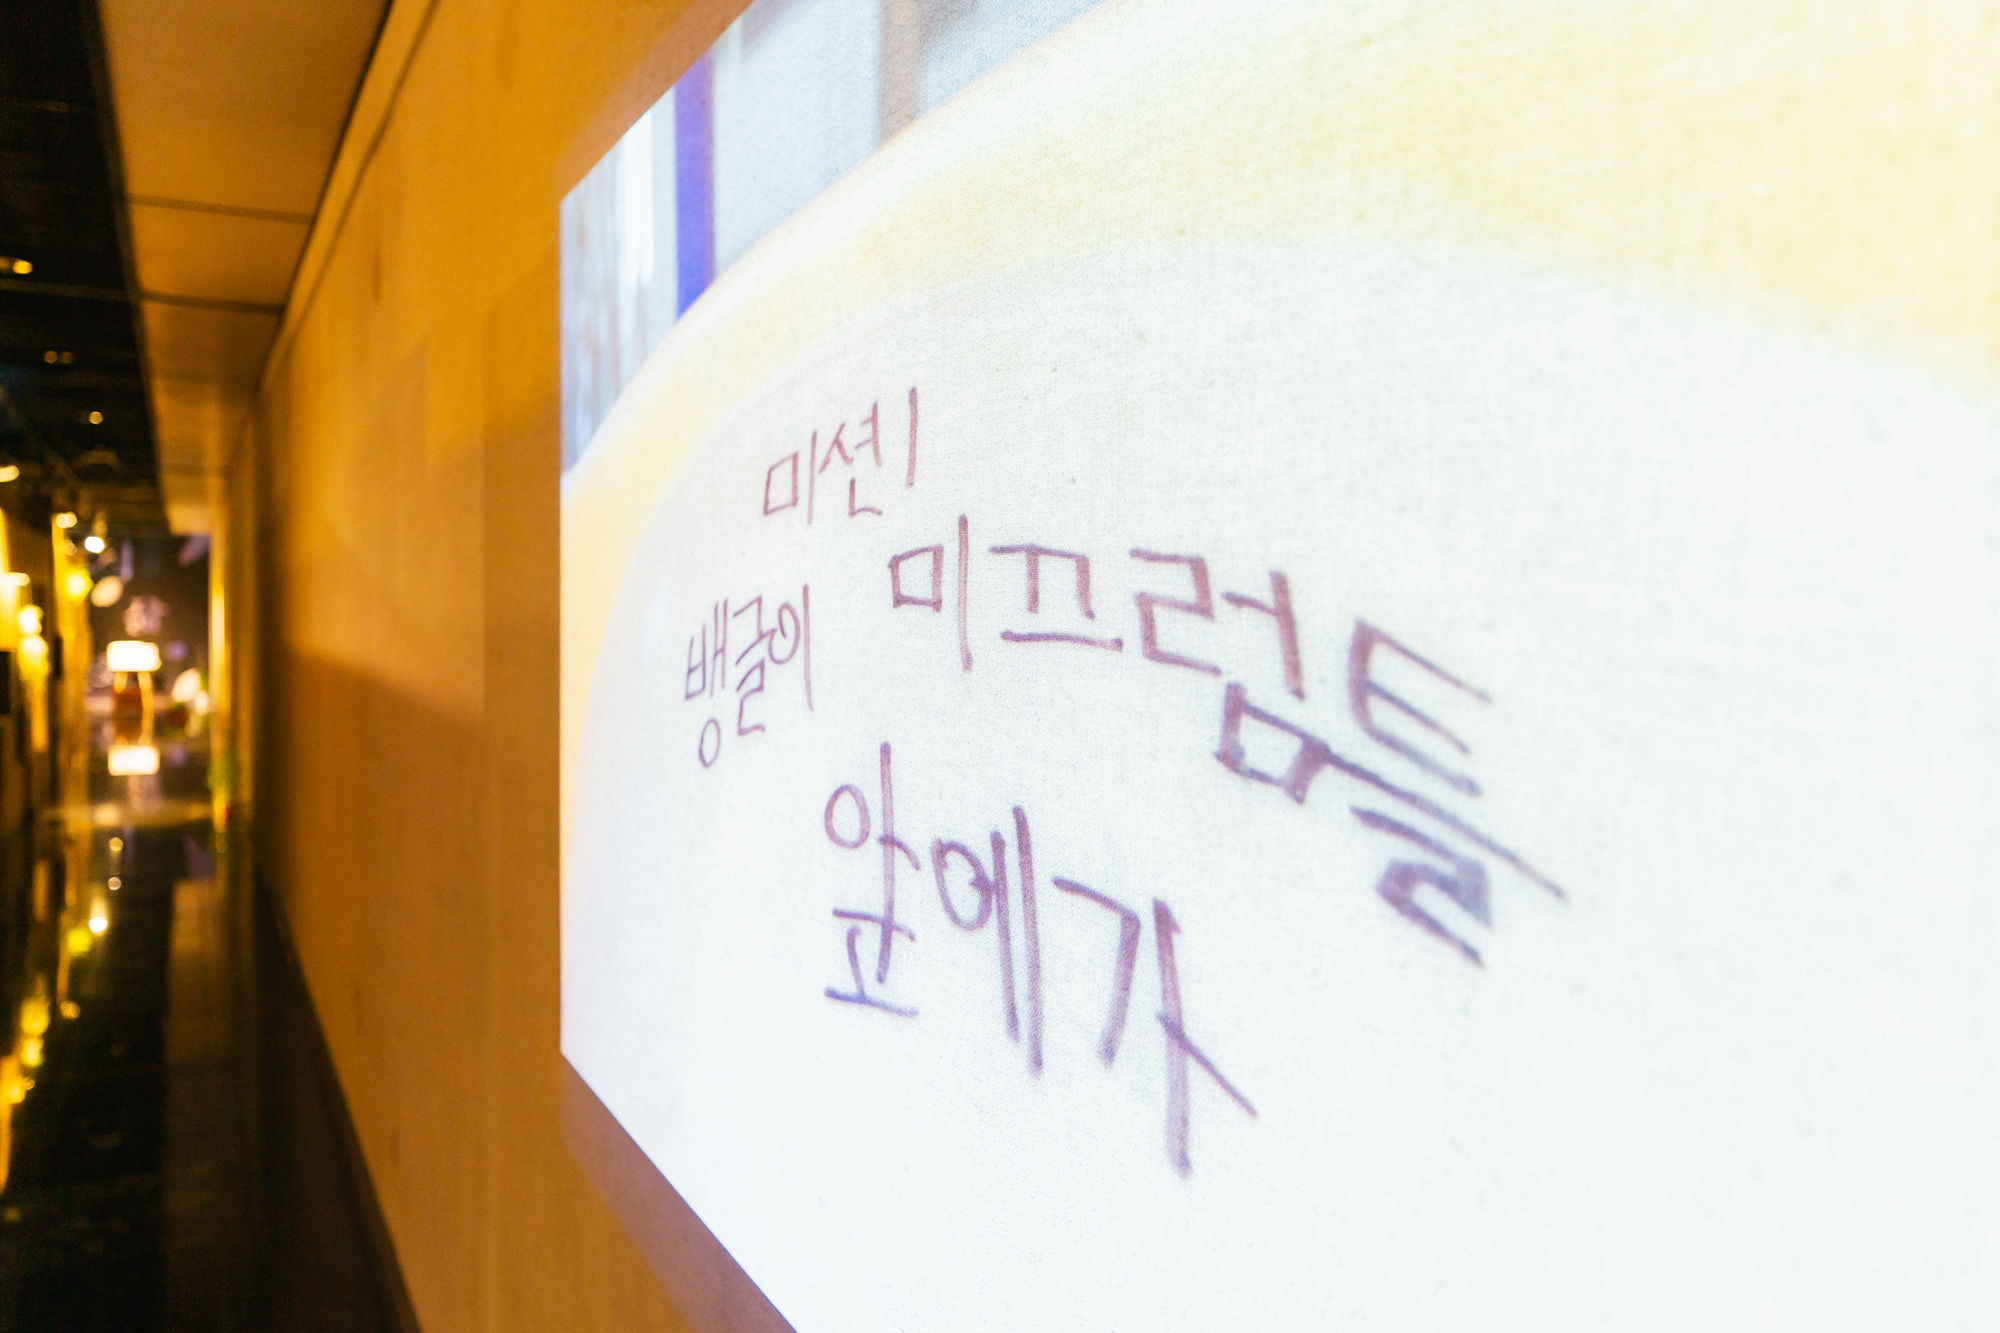 미션1
뱅글이 미끄럼틀
앞에가